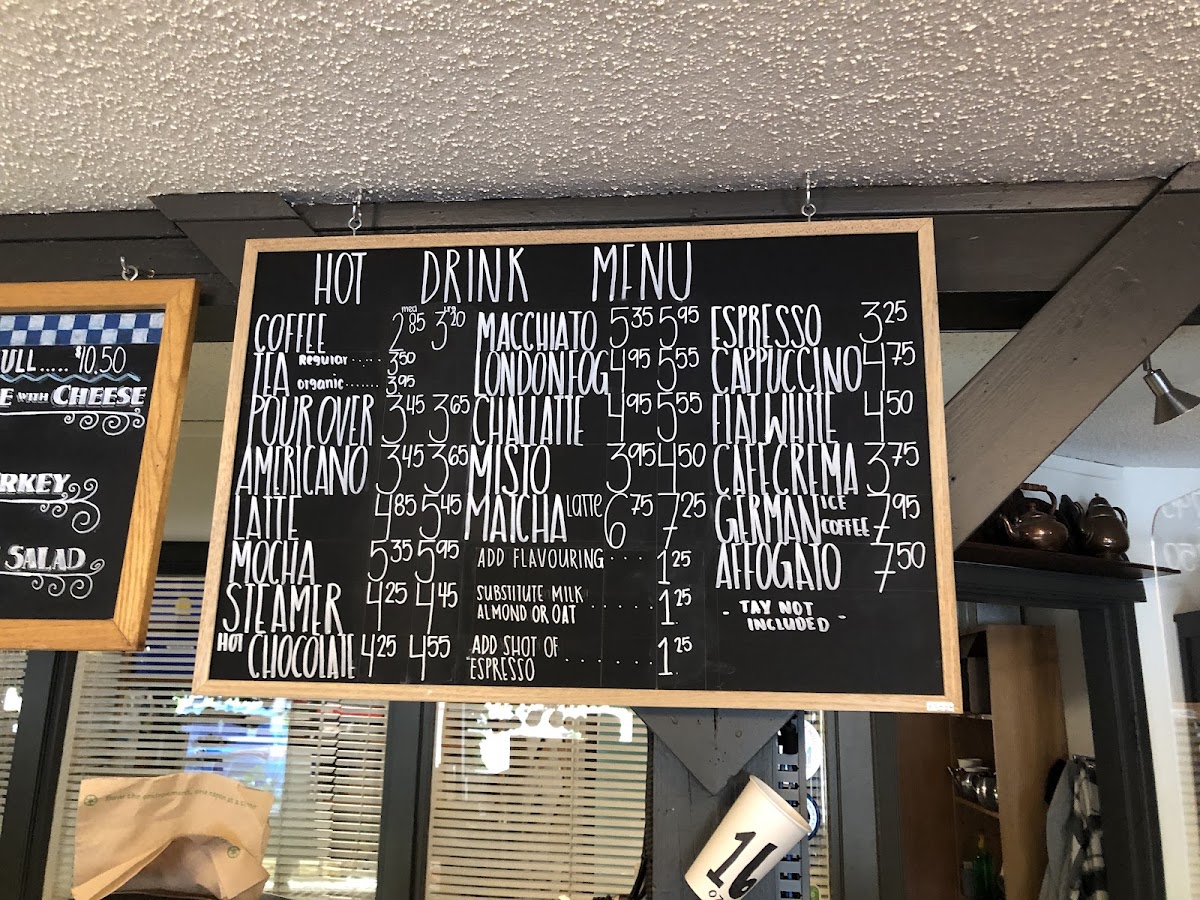 HOT DRINK MENU
med lrg
COFFEE 2.85 3.20
TEA Regular ..... 3.50
organic ....... 3.95
POUR OVER 3.45 3.65
AMERICANO 3.45 3.65
LATTE 4.85 5.45
MOCHA 5.35 5.95
STEAMER 4.25 4.45
HOT CHOCOLATE 4.25 4.55
MACCHIATO 5.35 5.95
LONDON FOG 4.95 5.55
CHAI LATTE 4.95 5.55
MISTO 3.95 4.50
MATCHA Latte 6.75 7.25
ADD FLAVOURING .... 1.25
SUBSTITUTE MILK
ALMOND OR OAT ...... 1.25
ADD SHOT OF
ESPRESSO ....... 1.25
ESPRESSO 3.25
CAPPUCCINO 4.75
FLAT WHITE 4.50
CAFE CREMA 3.75
GERMAN ICE COFFEE 7.95
AFFOGATO 7.50
- TAY NOT
INCLUDED -
ULL..... $10.50
E WITH CHEESE
RKEY
SALAD
16
OZ